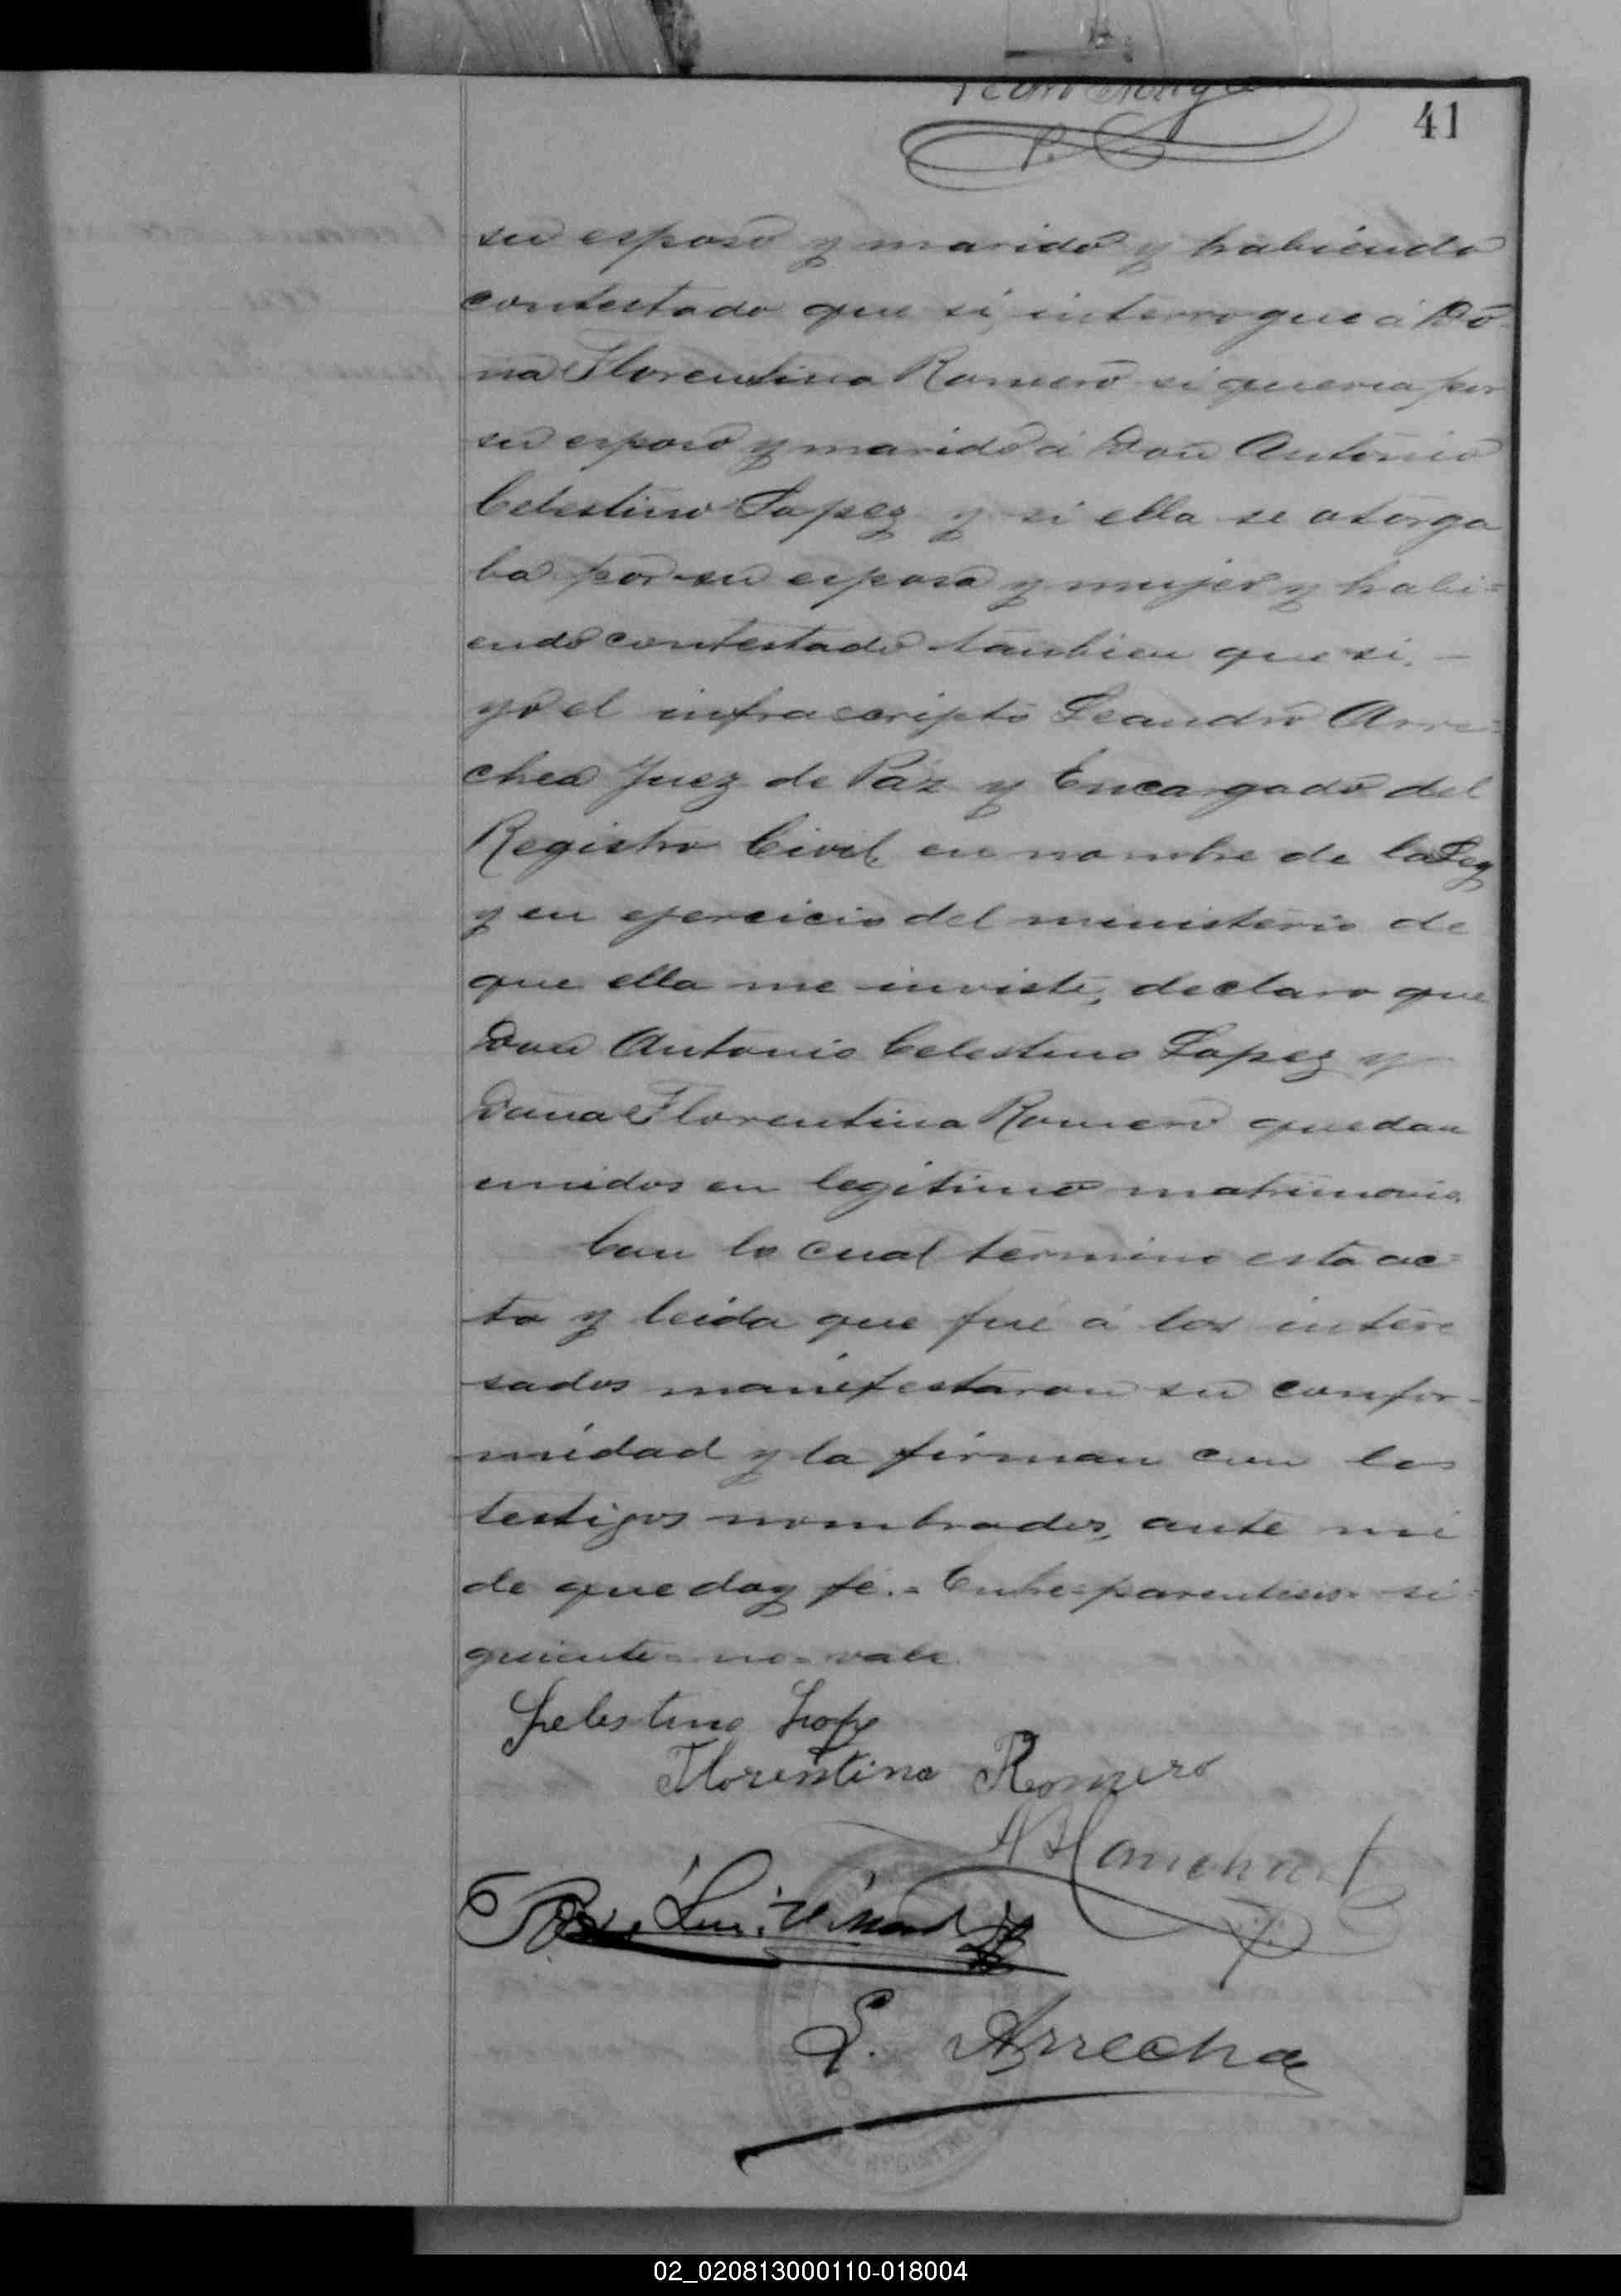 41
su esposo y marido y habiendo
contestado que si, interrogue á Do-
ña Florentina Romero si queria por
su esposo y marido á Don Antonio
Celestino Lopez y si ella se otorga
ba por su esposa y mujer y habi=
endo contestado tambien que si. —
yo el infrascripto Leandro Arre=
chea Juez de Paz y Encargado del
Registro Civil, en nombre de la Ley
y en ejercicio del ministerio de
que ella me inviste, declaro que
Don Antonio Celestino Lopez y
Doña Florentina Romero quedan
unidos en legitimo matrimonio.
Con lo cual termino esta ac=
ta y leida que fué á los intere
sados manifestaron su confor-
midad y la firman con los
testigos nombrados, ante mi
de que doy fé. = Entre parentesis = si=
guiente = no = vale.
Selestino Lope
Florentina Romero
L. Arrechea
02_020813000110-018004